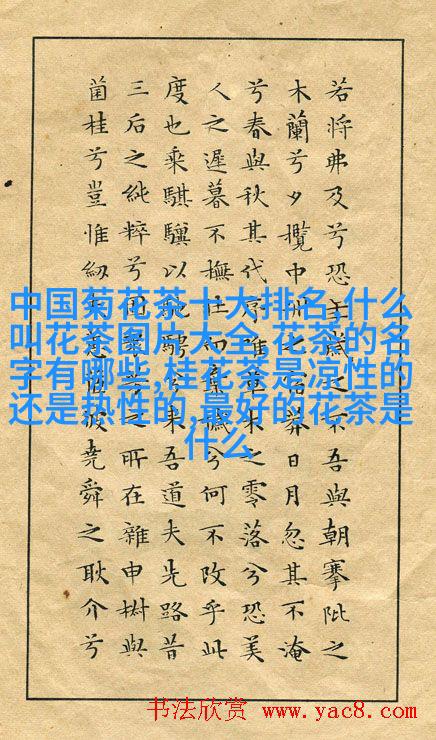 中国菊花茶十大排名,什么
叫花茶图片大全,花茶的名
字有哪些,桂花茶是凉性的
还是热性的,最好的花茶是
什么
若将弗及兮恐年歲之不吾與朝搴阰之
木蘭兮夕攬中州之宿莽日月忽其不淹
兮春與秋其代序惟草木之零落兮恐美
人之遲暮不撫壯而棄穢兮何不改乎此
度也乘騏驥以馳騁兮来吾道夫先路昔
三后之純粹兮固衆芳之所在雜申椒與
菌桂兮豈惟紉夫蕙彼堯舜之耿介兮
书法欣赏 www.yac8.com